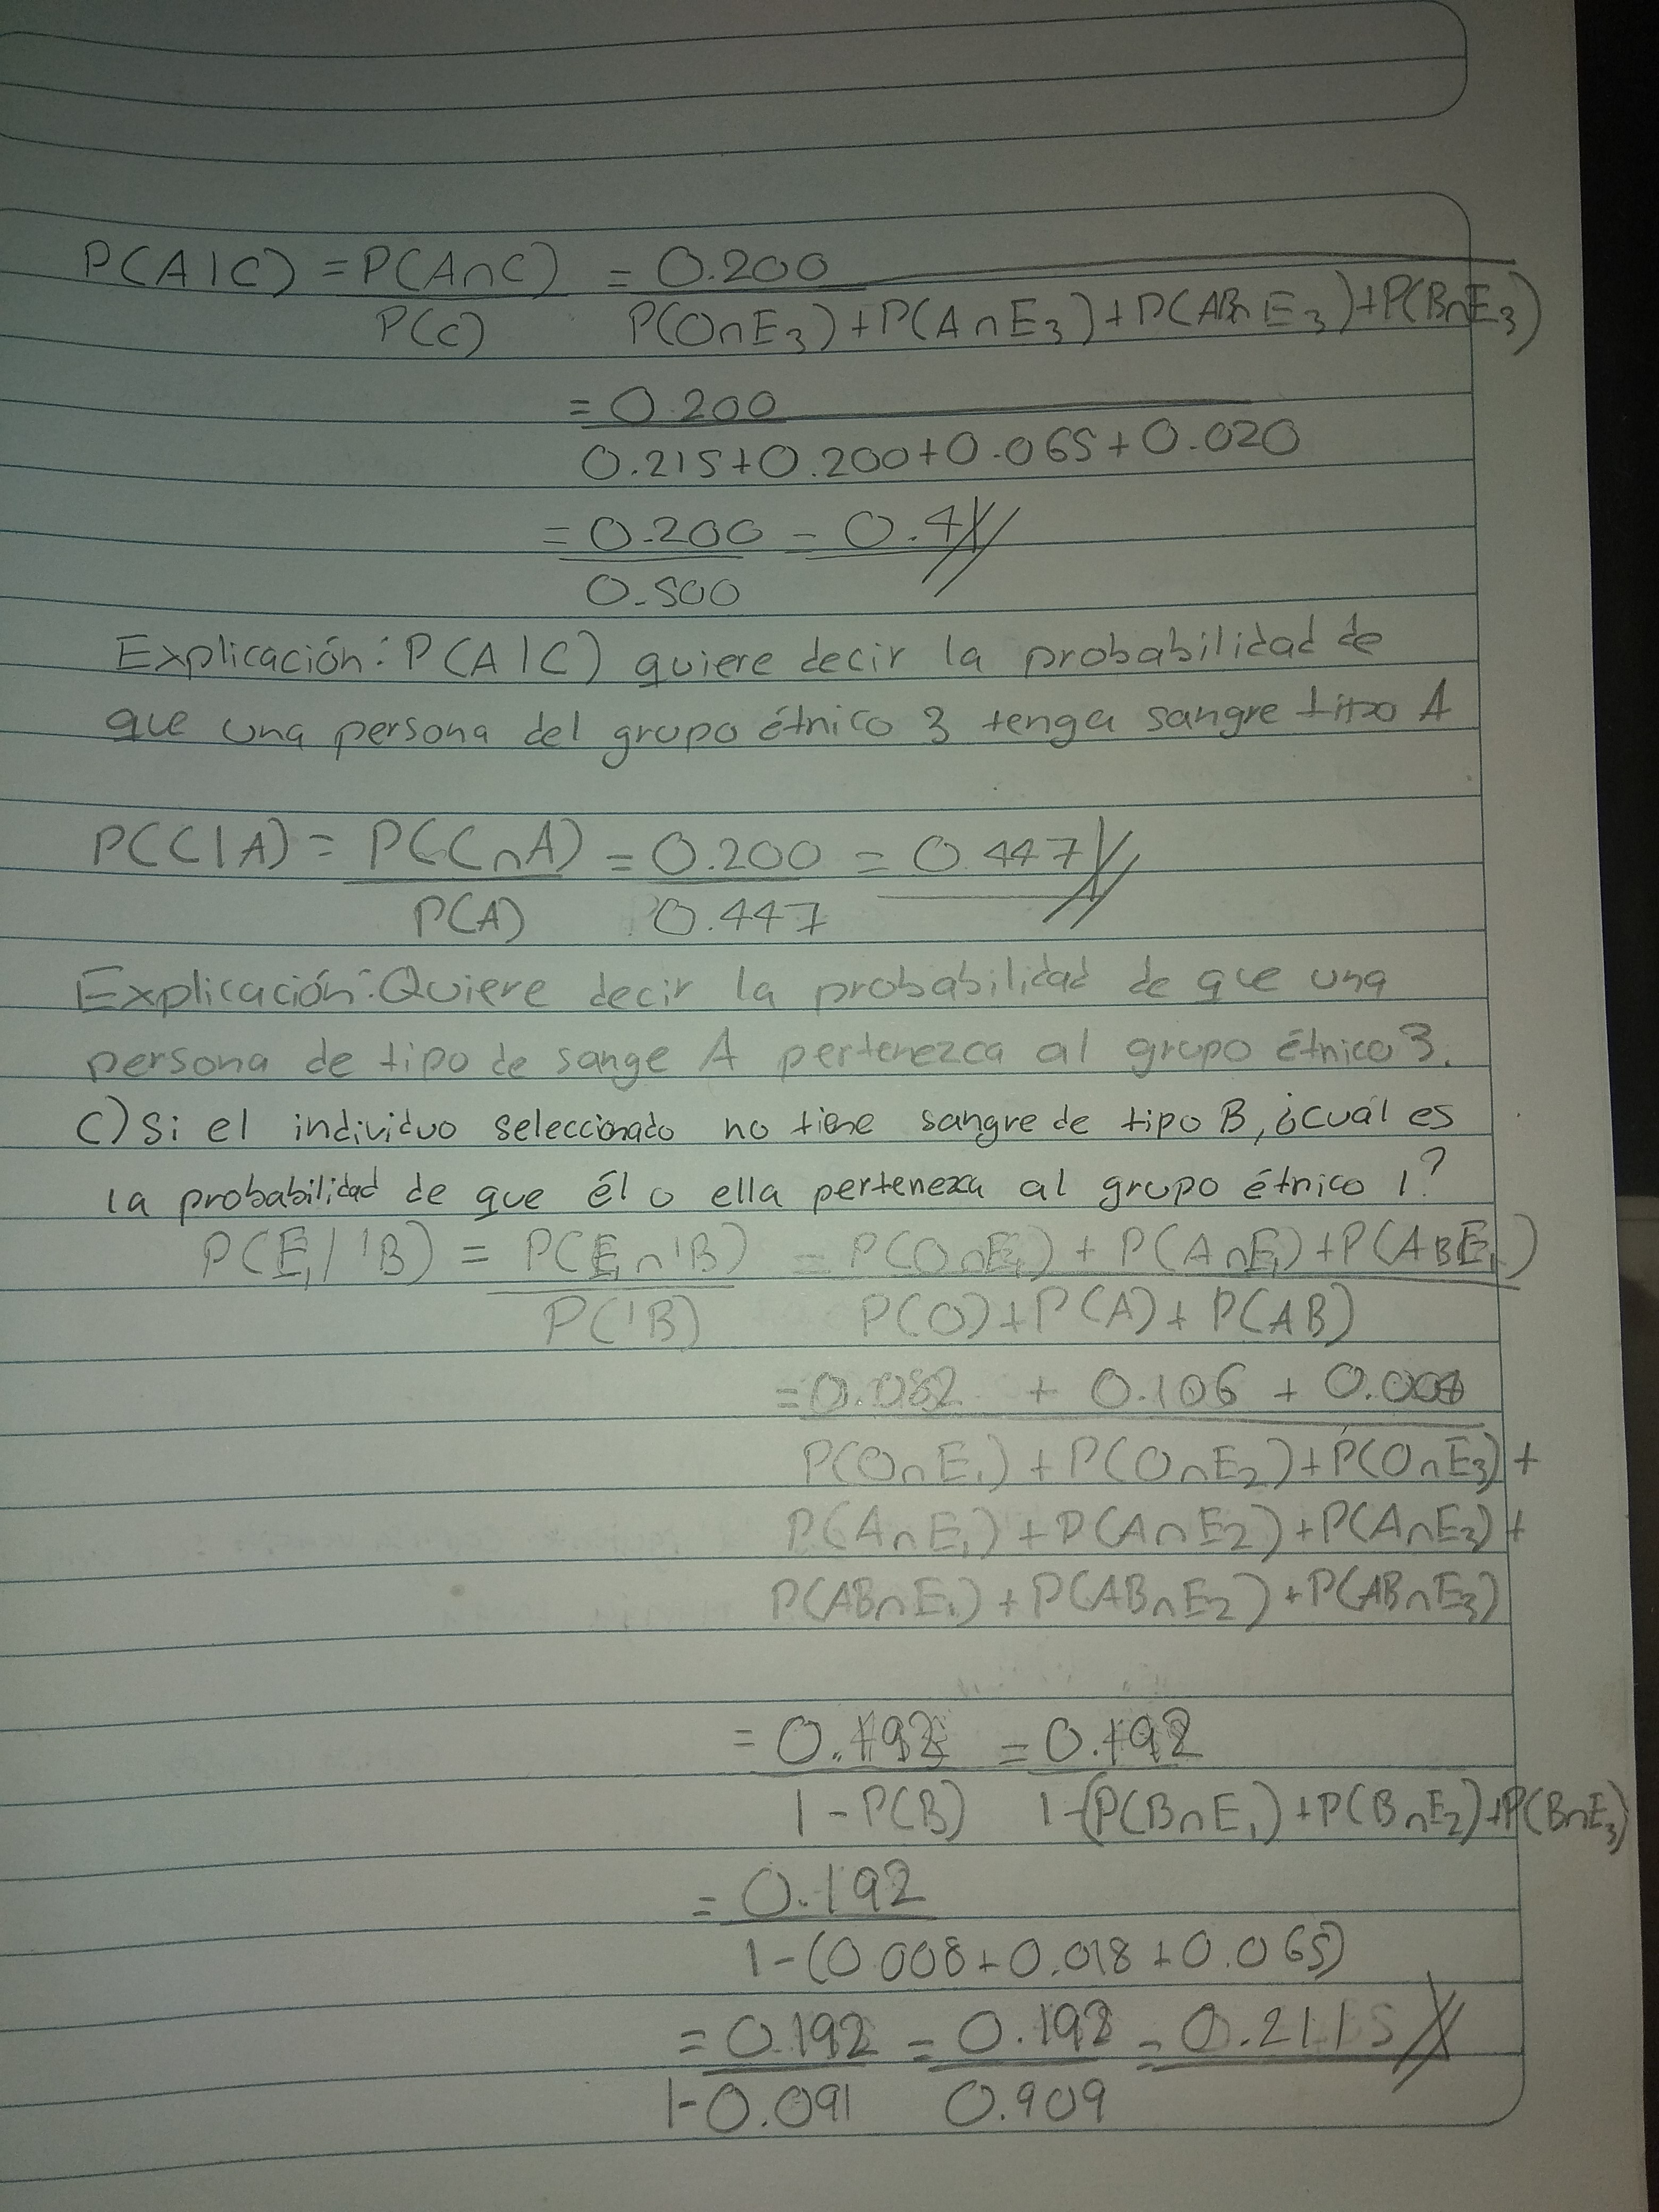 P(A|C) = P(A∩C) / P(C) = 0.200 / P(O∩E₃)+P(A∩E₃)+P(AB∩E₃)+P(B∩E₃)
= 0.200 / 0.215+0.200+0.065+0.020
= 0.200 / 0.500 = 0.4
Explicación: P(A|C) quiere decir la probabilidad de
que una persona del grupo étnico 3 tenga sangre tipo A
P(C|A) = P(C∩A) / P(A) = 0.200 / 0.447 = 0.447
Explicación: Quiere decir la probabilidad de que una
persona de tipo de sange A pertenezca al grupo étnico 3.
c) Si el individuo seleccionado no tiene sangre de tipo B, ¿cuál es
la probabilidad de que él o ella pertenexca al grupo étnico 1?
P(E₁|'B) = P(E₁∩'B) / P('B) = P(O∩E₁) + P(A∩E₁) + P(ABE₁) / P(O)+P(A)+P(AB)
= 0.082 + 0.106 + 0.004 / P(O∩E₁)+P(O∩E₂)+P(O∩E₃)+
P(A∩E₁)+P(A∩E₂)+P(A∩E₃)+
P(AB∩E₁)+P(AB∩E₂)+P(AB∩E₃)
= 0.192 / 1-P(B) = 0.192 / 1-(P(B∩E₁)+P(B∩E₂)+P(B∩E₃)
= 0.192 / 1-(0.008+0.018+0.065)
= 0.192 / 1-0.091 = 0.192 / 0.909 = 0.2115